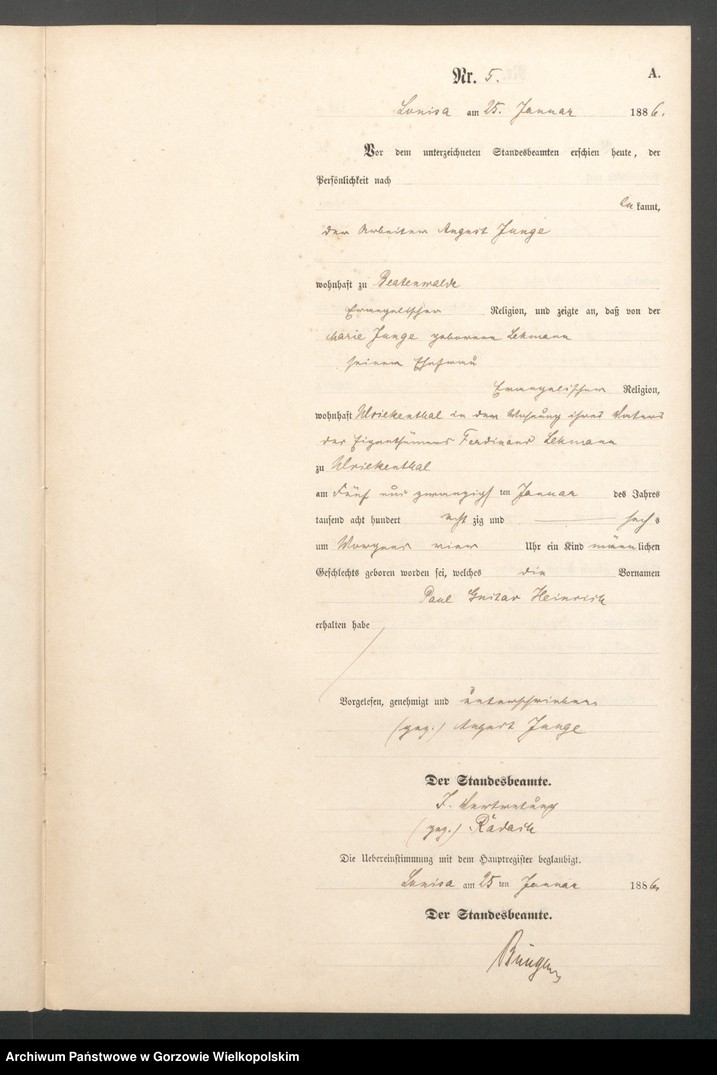 Nr. 5. A.
Louisa am 25. Januar 1886.
Vor dem unterzeichneten Standesbeamten erschien heute, der
Persönlichkeit nach
be kannt,
der Arbeiter August Junge
wohnhaft zu Beatenwalde
Evangelischer Religion, und zeigte an, daß von der
Marie Junge geborenen Lehmann
seiner Ehefrau
Evangelischer Religion,
wohnhaft Ulrickenthal in der Wohnung ihres Vaters
des Eigenthümers Ferdinand Lehmann
zu Ulrickenthal
am Fünf und zwanzigst ten Januar des Jahres
tausend acht hundert acht zig und sech s
um Morgens vier Uhr ein Kind männ lichen
Geschlechts geboren worden sei, welches die Vornamen
Paul Gustav Heinrich
erhalten habe
Vorgelesen, genehmigt und unterschrieben
(gez.) August Junge
Der Standesbeamte.
I. Vertretung
(gez.) Radach
Die Uebereinstimmung mit dem Hauptregister beglaubigt.
Louisa am 25 ten Januar 1886
Der Standesbeamte.
Archiwum Państwowe w Gorzowie Wielkopolskim